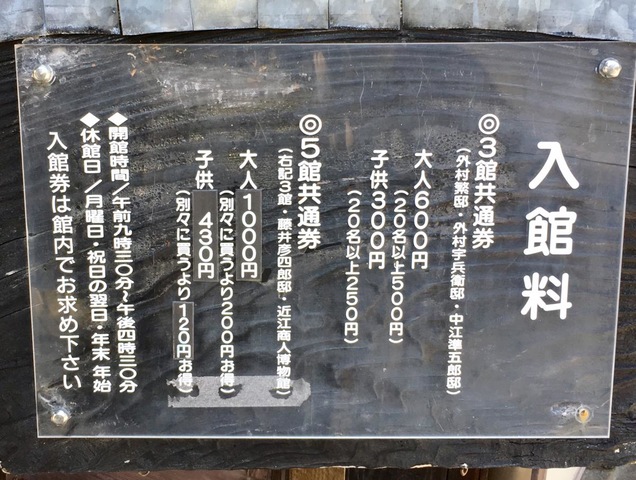 入館料
◎3館共通券
(外村繁邸・外村宇兵衛邸・中江準五郎邸)
大人600円
(20名以上500円)
子供300円
(20名以上250円)
◎5館共通券
(右記3館・藤井彦四郎邸・近江商人博物館)
大人1000円
(別々に買うより200円お得)
子供430円
(別々に買うより120円お得)
◆開館時間/午前九時三〇分～午後四時三〇分
◆休館日/月曜日・祝日の翌日・年末年始
入館券は館内でお求め下さい